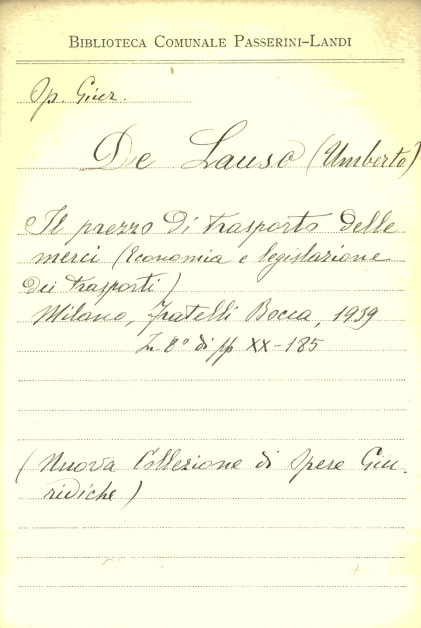 BIBLIOTECA COMUNALE PASSERINI-LANDI
Op. Giur.
De Lauso (Umberto)
Il prezzo di trasporto delle
merci (Economia e legislazione
dei trasporti)
Milano, Fratelli Bocca, 1939
In 8° di pp XX-185
(Nuova Collezione di Opere Giu-
ridiche)